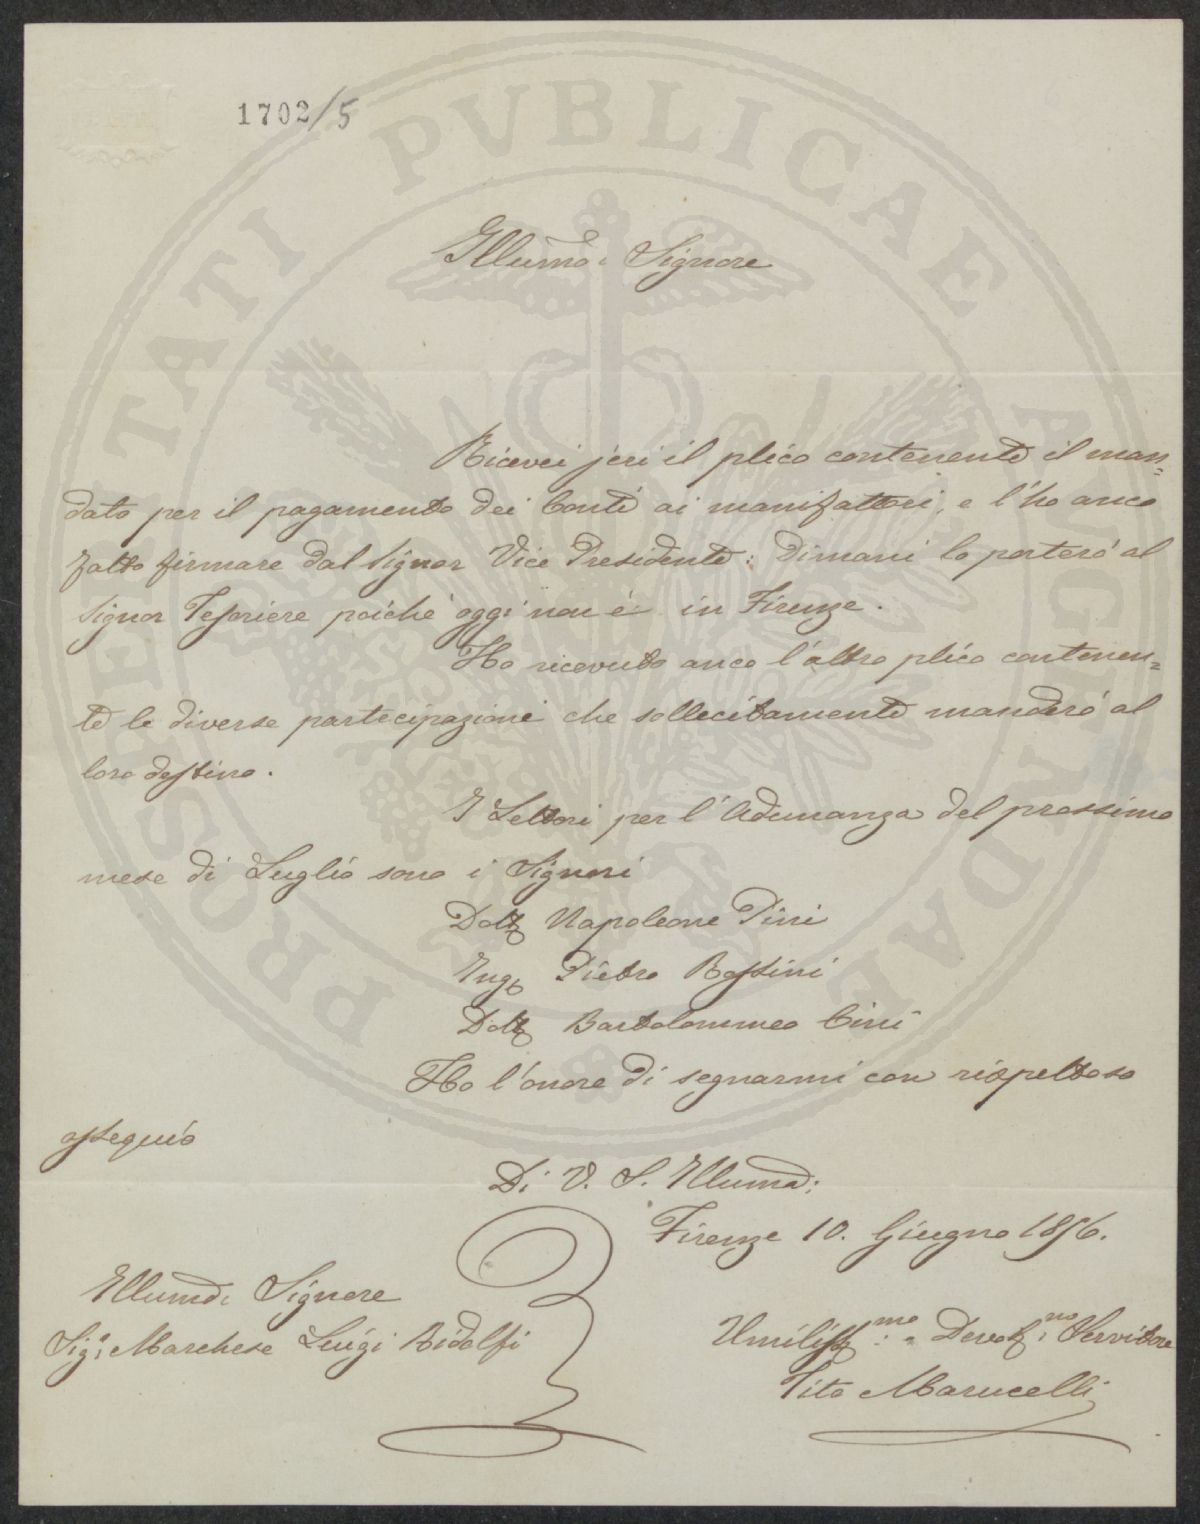 1702/5
PROSPERITATI PVBLICAE AVGENDAE
Illumo: Signore
Ricevei jeri il plico contenente il man=
dato per il pagamento dei Conti ai manifattori, e l'ho anco
fatto firmare dal Signor Vice Presidente: Dimani lo porterò al
Signor Tesoriere poichè oggi non è in Firenze.
Ho ricevuto anco l'altro plico contenen=
te le diverse partecipazioni che sollecitamente manderò al
loro destino.
I Lettori per l'Adunanza del prossimo
mese di Luglio sono i Signori
Dott Napoleone Pini
Ing Pietro Bastini
Dott Bartolommeo Cini
Ho l'onore di segnarmi con rispettoso
ossequio
Di V. S. Illuma:
Firenze 10. Giugno 1856.
Illumo: Signore
Sigr: Marchese Luigi Ridolfi
Umiliss:mo e Devot:mo Servitore
Tito Marucelli